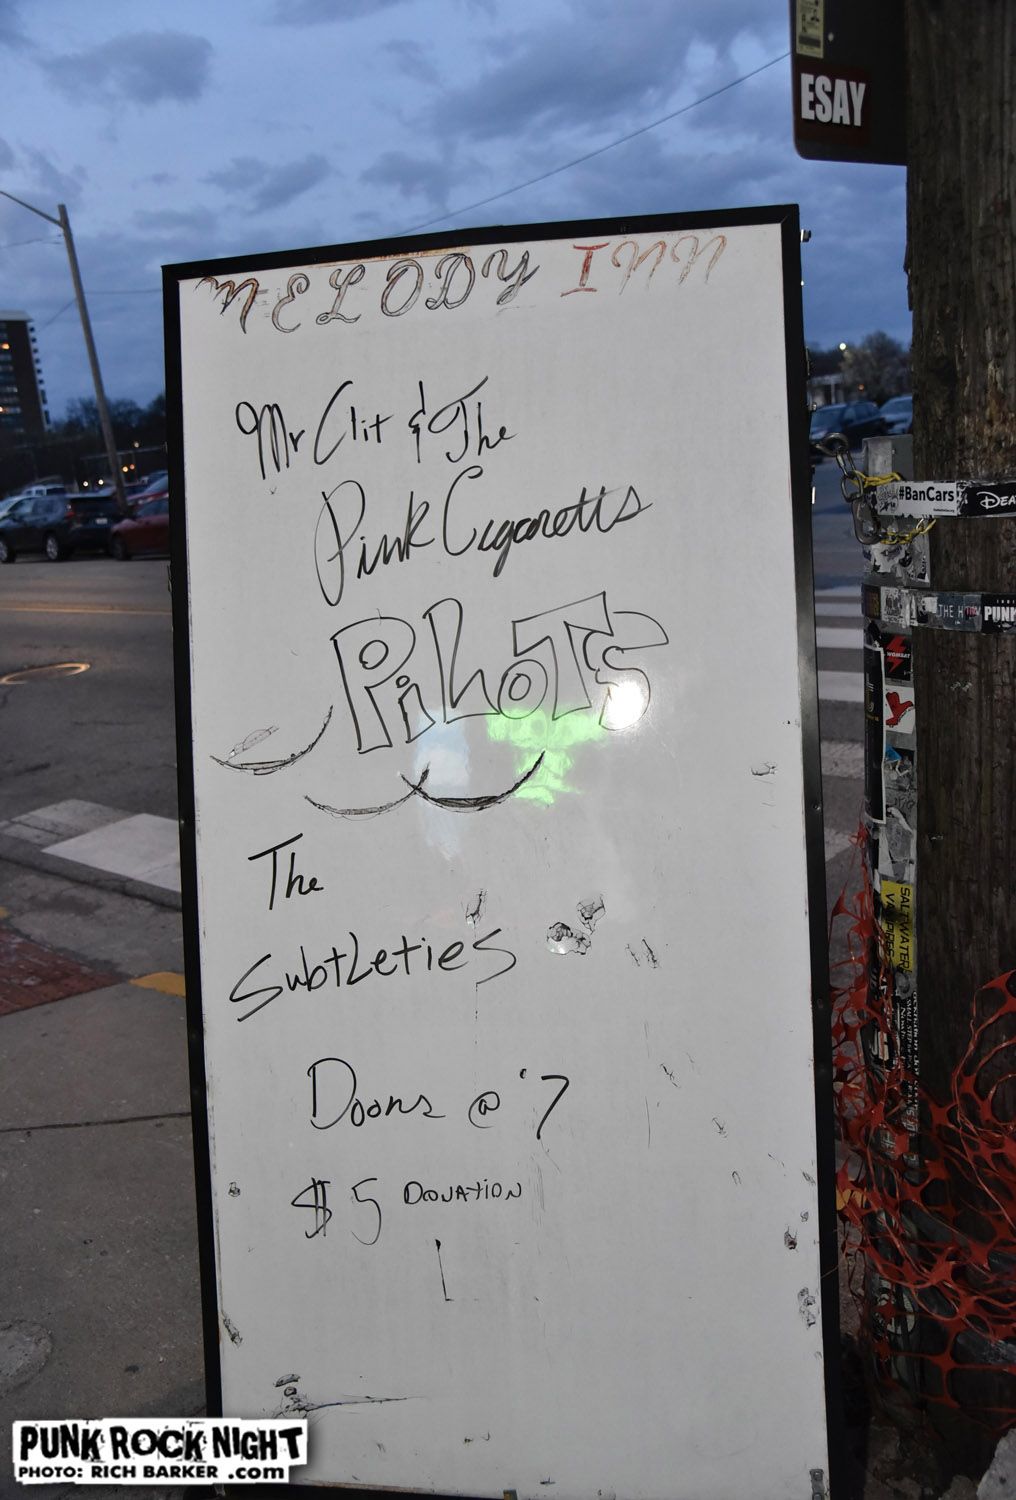 ESAY
MELODY INN
Mr Clit & The
Pink Cigaretts
PiLoTS
The
SubtLeties
Doors @ '7
$5 DONATION
#BanCars
DEA
THE H
PUNK
WOMBAT
SALTWATER
VAMPIRES
PUNK ROCK NIGHT
PHOTO: RICH BARKER .com